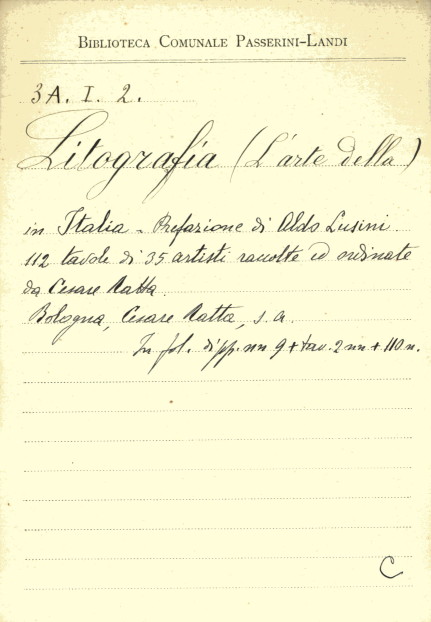 BIBLIOTECA COMUNALE PASSERINI-LANDI
3A. I. 2.
Litografia (L'arte della)
in Italia - Prefazione di Aldo Lusini.
112 tavole di 35 artisti raccolte ed ordinate
da Cesare Ratta.
Bologna, Cesare Ratta, s. a.
In fol. di pp. nn 9 + tav. 2 nn + 110 n.
C